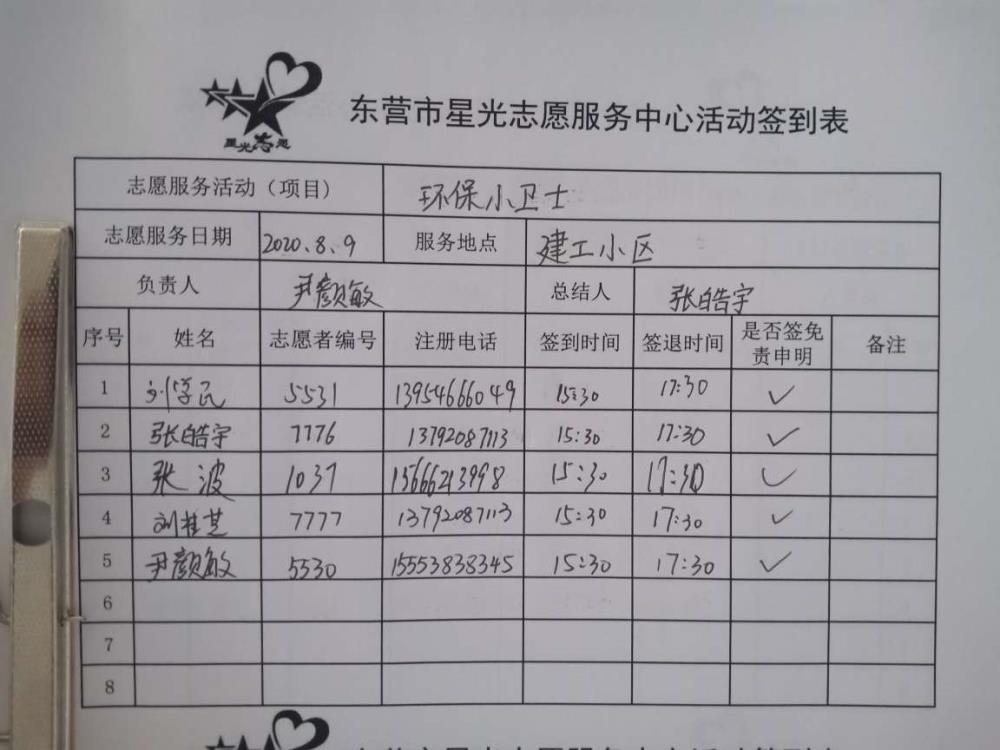 星光志愿
东营市星光志愿服务中心活动签到表
志愿服务活动（项目） 环保小卫士
志愿服务日期 2020.8.9 服务地点 建工小区
负责人 尹颜敏 总结人 张皓宇
序号 姓名 志愿者编号 注册电话 签到时间 签退时间 是否签免责申明 备注
1 刘学民 5531 13954666049 15:30 17:30 ✓
2 张皓宇 7776 13792087113 15:30 17:30 ✓
3 张波 1037 15666213998 15:30 17:30 ✓
4 刘桂芝 7777 13792087113 15:30 17:30 ✓
5 尹颜敏 5530 15553838345 15:30 17:30 ✓
6
7
8
东营市星光志愿服务中心活动签到表